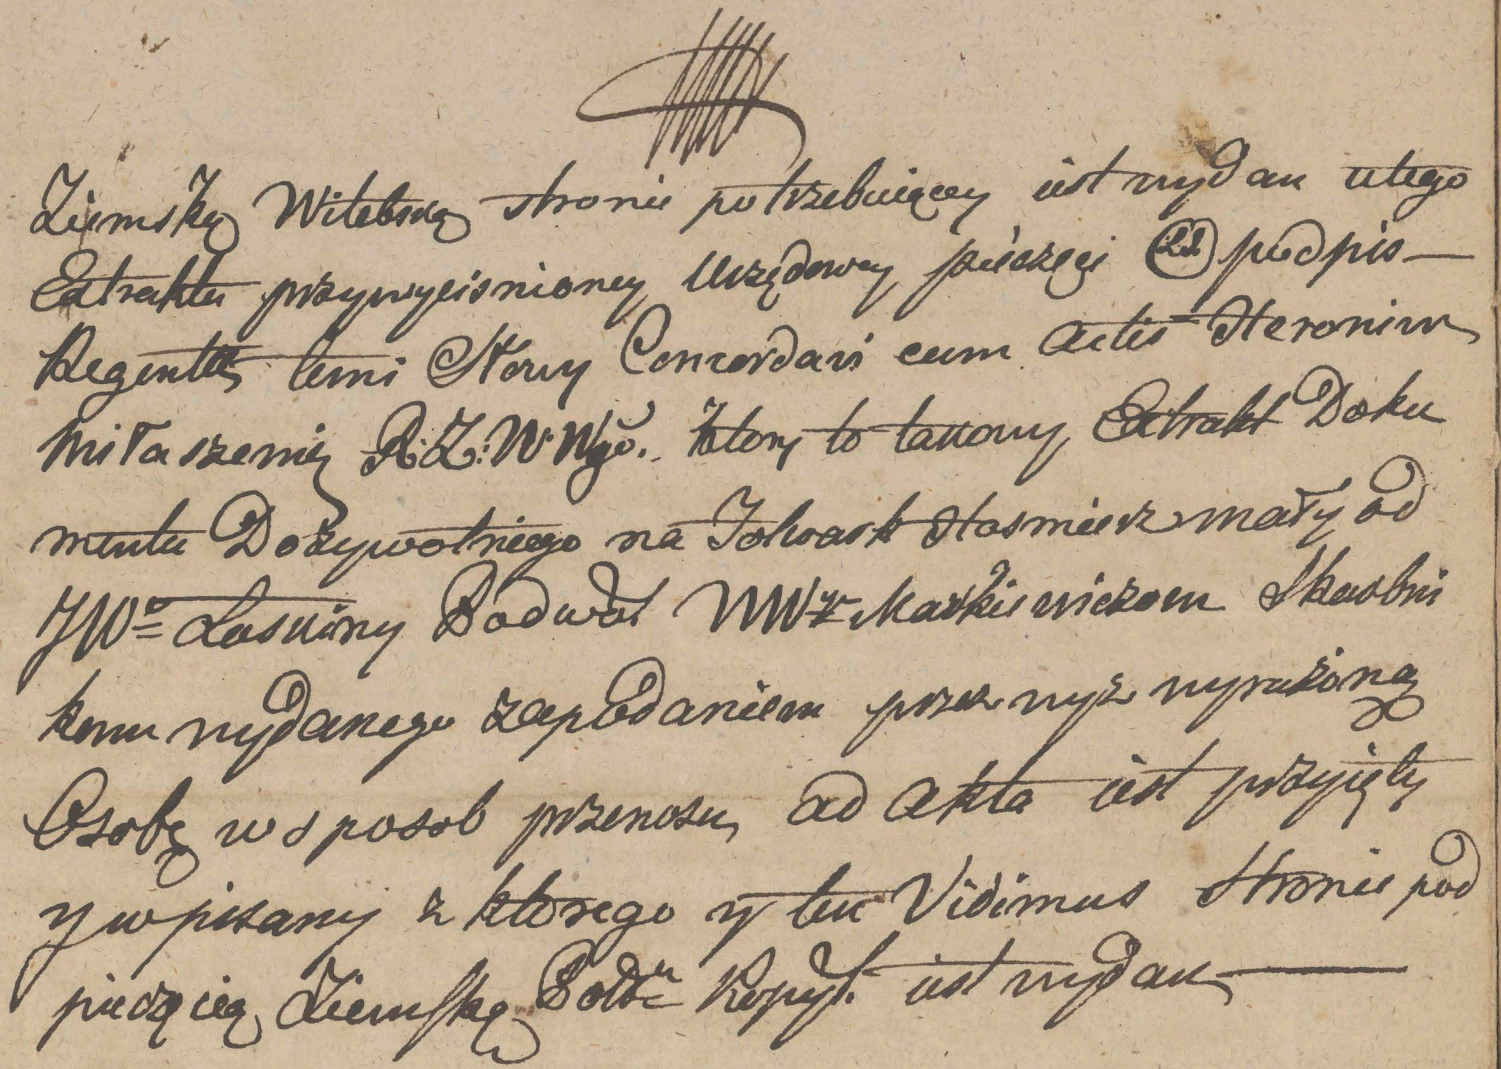 Ziemską Witebską stronie potrzebuiącey iest wydan utego
Extraktu przywycisnioney Urzędowey pieczęci LS podpis
Regenta temi Słowy Concordavi cum Actis Heronim
Miłaszewicz R. Z. W. Wgo. Ktory to takowy Extrakt Doku
mentu Dożywotniego na Folwark Hosmierz mały od
JWo Łaskiny Podwoł WW Markiewiczom Skarbni
komu wydanego zapodaniem przez wyż wyrażoną
Osobę w sposob przenosu, ad Akta iest przyięty
y wpisany z ktorego y ten Vidimus Stronie pod
pieczęcią Ziemską iest wydan